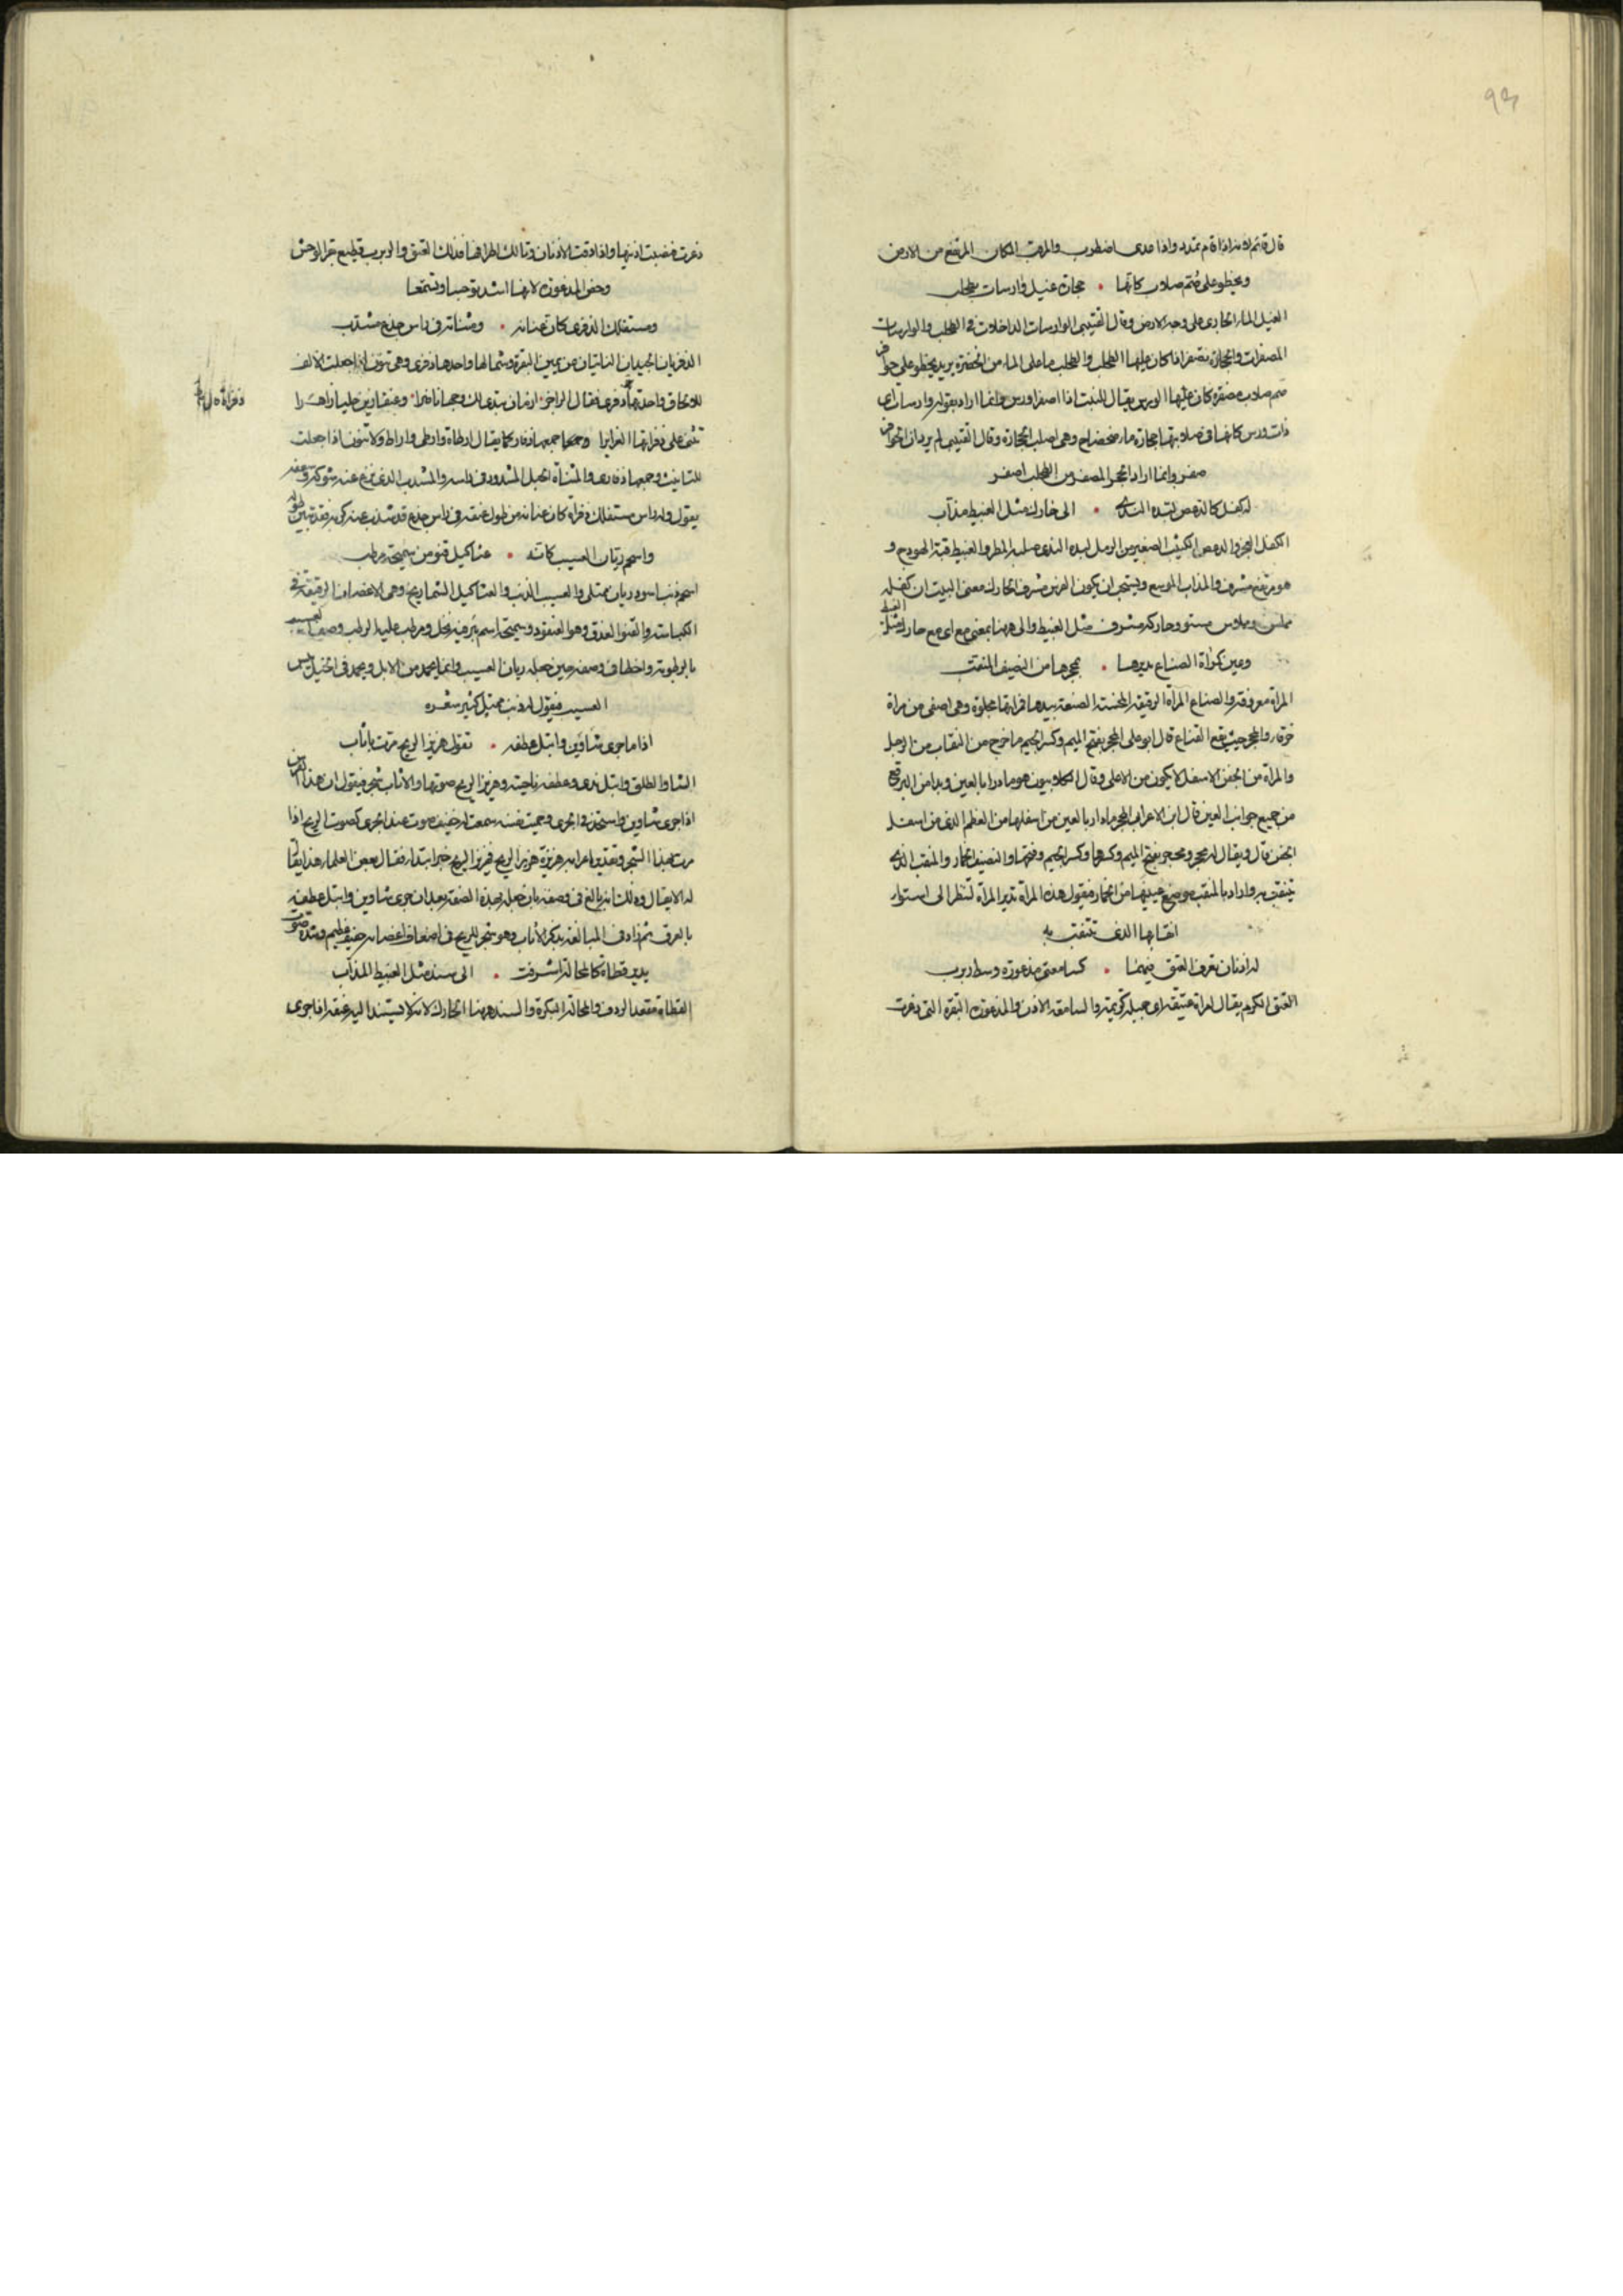 93
قال قائم لانه اذا قام تمدد واذا عدى اضطرب والمرقب المكان المرتفع من الارض
ويخطو على صم صلاب كانها • حجارة غيل وارسات بطحلب
الغيل الماء الجارى على وجه الارض وقال القتيبى الوارسات الداخلات فى الطحلب والوارسات
المصفرات والحجارة تصفر اذا كان عليها الطحلب والطحلب ما على الماء من الخضرة يريد يخطو على حوافر
صم صلاب مصفرة كان عليها الورس يقال للنبت اذا اصفر اورس وانما اراد بقوله وارسات اى
ذات ورس كانها فى صلابتها حجارة ماء ضحضاح وهى اصلب الحجارة وقال القتيبى لم يرد ان الحوافر
صفر وانما اراد الحجر المصفر من الطحلب اصفر
له كفل كالدعص لبده الندى • الى حارك مثل الغبيط مذأب
الكفل العجز والدعص الكثيب الصغير من الرمل لبده الندى صلبه المطر والغبيط قبة الهودج و
هو مرتفع مشرف والمذأب الموسع ويستحب ان يكون الفرس مشرف الحارك معنى البيت ان كفله
املس مستو وحاركه مشرف مثل الغبيط والى ههنا بمعنى مع اى مع حارك مثل الغبيط
وعين كمرآة الصناع تديرها • بمحجرها من النصيف المنقب
المرآة معروفة والصناع المرأة الرقيقة المحسنة الصنعة بيدها فمرآتها مجلوة وهى اصفى من مرآة
خرقاء والمحجر حيث يقع القناع قال ابو على المحجر بفتح الميم وكسر الجيم ما خرج من النقاب من الرجل
والمرأة من الجفن الاسفل لا يكون من الاعلى وقال الكلابيون هو ما دار بالعين وبدا من البرقع
من جميع جوانب العين قال ابن الاعرابى المحجر ما دار بالعين من اسفلها من العظم الذى من اسفل
الجفن قال ويقال له محجر ومحجر بفتح الميم وكسرها وكسر الجيم وفتحها والنصيف الخمار والمنقب الذى
تنتقب به واراد بالمنقب موضع عينيها من الخمار فيقول هذه المرأة تدير المرآة لتنظر الى استواء
نقابها الذى تنتقب به
له اذنان تعرف العتق فيهما • كسامعتى مذعورة وسط ربرب
العتق الكرم يقال امرأة عتيقة اى جميلة كريمة والسامعة الاذن والمذعورة البقرة التى ذعرت
ذعرت فنصبت اذنيها واذا دقت الاذنان وتأللت اطرافها فذلك العتق والربرب قطيع بقر الوحش
وخص المذعورة لانها اشد توجسا وتسمعا
ومستفلك الذفرى كان عنانه • ومثناته فى راس جذع مشذب
الذفريان الحيدان الناتيان عن يمين النقرة وشمالها واحدها ذفرى وهى تنون اذا جعلت الالف
للالحاق واحدتها ذفرى فقال الراجز • ازمان تبدى لك وجها ناضرا • وعنقا زين حليا زاهرا
تثنى على ذفراتها الغدايرا وجمعها ذفار كما يقال ارطاة وارطى واراط ولا تنون اذا جعلت
للتانيث وجمعها ذفارى والمثناة الحبل المشدود فى راسه والمشذب الذى نزع عنه شوكه وسعفه
يقول وله راس مستفلك ذفراه كان عنانه من طول عنقه فى راس جذع قد شذب عنه كربه فقد تبين طوله
واسحم ريان العسيب كانه • عثاكيل قنو من سميحة مرطب
اسحم ذنب اسود ريان ممتلى والعسيب الذنب والعثاكيل الشماريخ وهى الاغصان الرقيقة فى
الكباسة والقنو العذق وهو العنقود وسميحة اسم بئر فيه نخل ومرطب عليه الرطب وصف العسيب
بالرطوبة واخطا فى وصفه حين جعله ريان العسيب وانما يحمد من الابل ويحمد فى الخيل يبس
العسيب فيقول له ذنب ممتلى كثير شعره
اذا ما جرى شاوين وابتل عطفه • تقول هزيز الريح مرت باثأب
الشاو الطلق وابتل ندى وعطفه ناحيته وهزيز الريح صوتها والاثأب شجر فيقول ان هذا الفرس
اذا جرى شاوين واستحن فى الجرى وحميت نفسه سمعت له حفيف صوت عند الجرى كصوت الريح اذا
مرت بهذا الشجر وتقدير اعرابه هزيزة هزيز الريح فهزيز الريح خبر ابتداء فقال بعض العلماء هذا يقال
له الايغال وذلك انه بالغ فى وصفه بان جعله بهذه الصفة بعد ان جرى شاوين وابتل عطفه
بالعرق ثم زاد فى المبالغة بذكر الاثأب وهو شجر للريح فى اضعاف اغصانه حفيف عظيم وشدة صوت
يدير قطاة كالمحالة اشرفت • الى سند مثل الغبيط المذأب
القطاة مقعد الردف والمحالة البكرة والسند ههنا الحارك لانه كانه يستند اليه عنقه اذا جرى